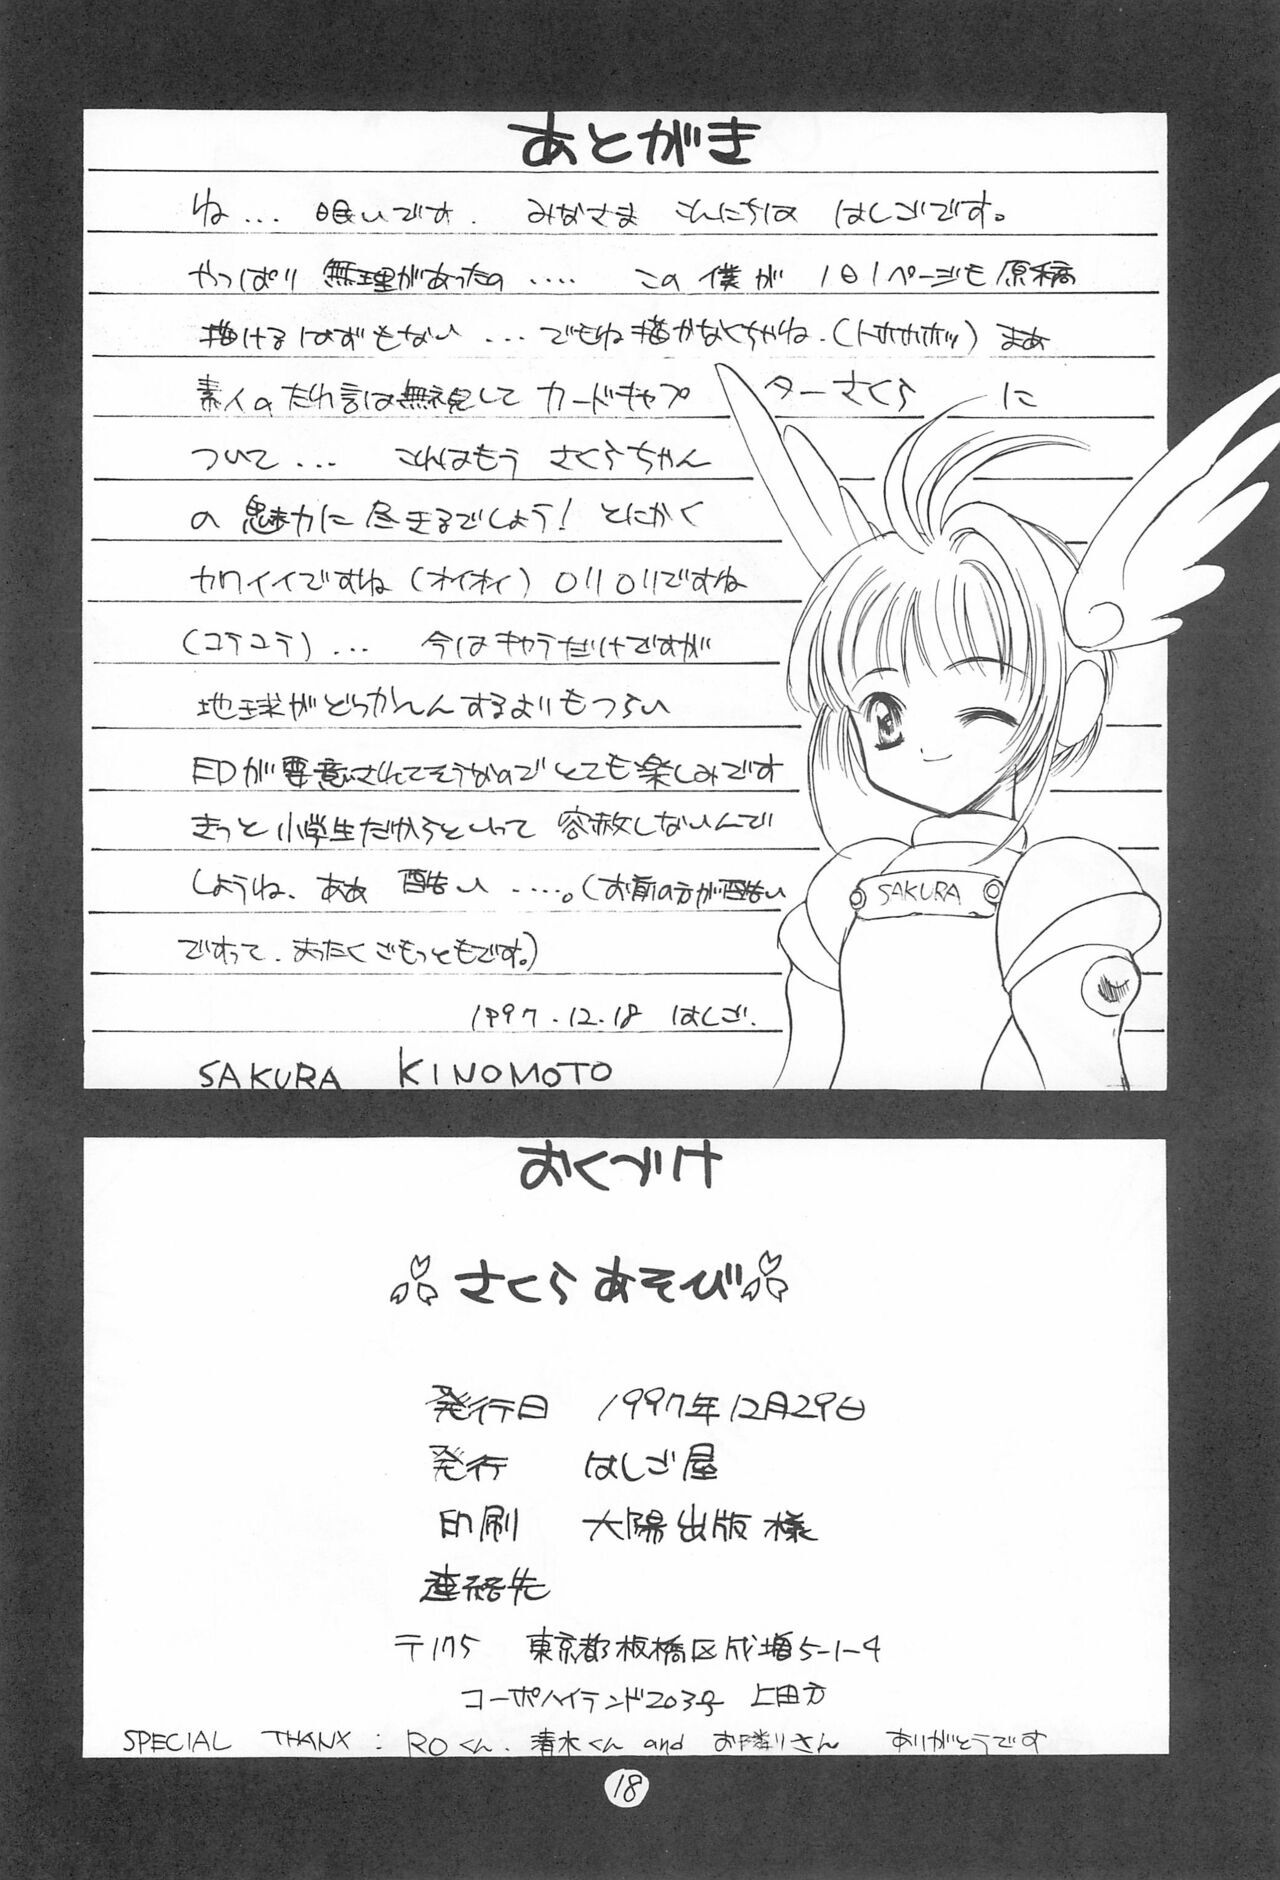 あとがき
ね... 眠いです. みなさま こんにちは はしごです。
やっぱり 無理があったの .... この僕が 1日1ページも原稿
描けるはずもない ... でもね描かなくちゃね.(トホホホホッ) まあ
素人のたれ言は無視して カードキャプ ターさくら に
ついて... これはもう さくらちゃん
の魅力に尽きるでしょう! とにかく
カワイイですね (オイオイ) ですね
(コラコラ) ... 今はキャラだけですが
地球がどっかんんするよりもつらい
EDが要意されてそうなのでとても楽しみです
きっと小学生だからといって 容赦しないんで
しょうね、ああ 酷い .....。(お前の方が酷い
ですって. まったくごもっともです。)
1997.12.18 はしご.
SAKURA KINOMOTO
SAKURA
おくづけ
さくらあそび
発行日 1997年12月29日
発行 はしご屋
印刷 大陽出版様
連絡先
〒175 東京都板橋区成増5-1-4
コーポハイランド203号 上田方
SPECIAL THANX : ROくん. 清水くん and お隣りさん ありがとうです
18